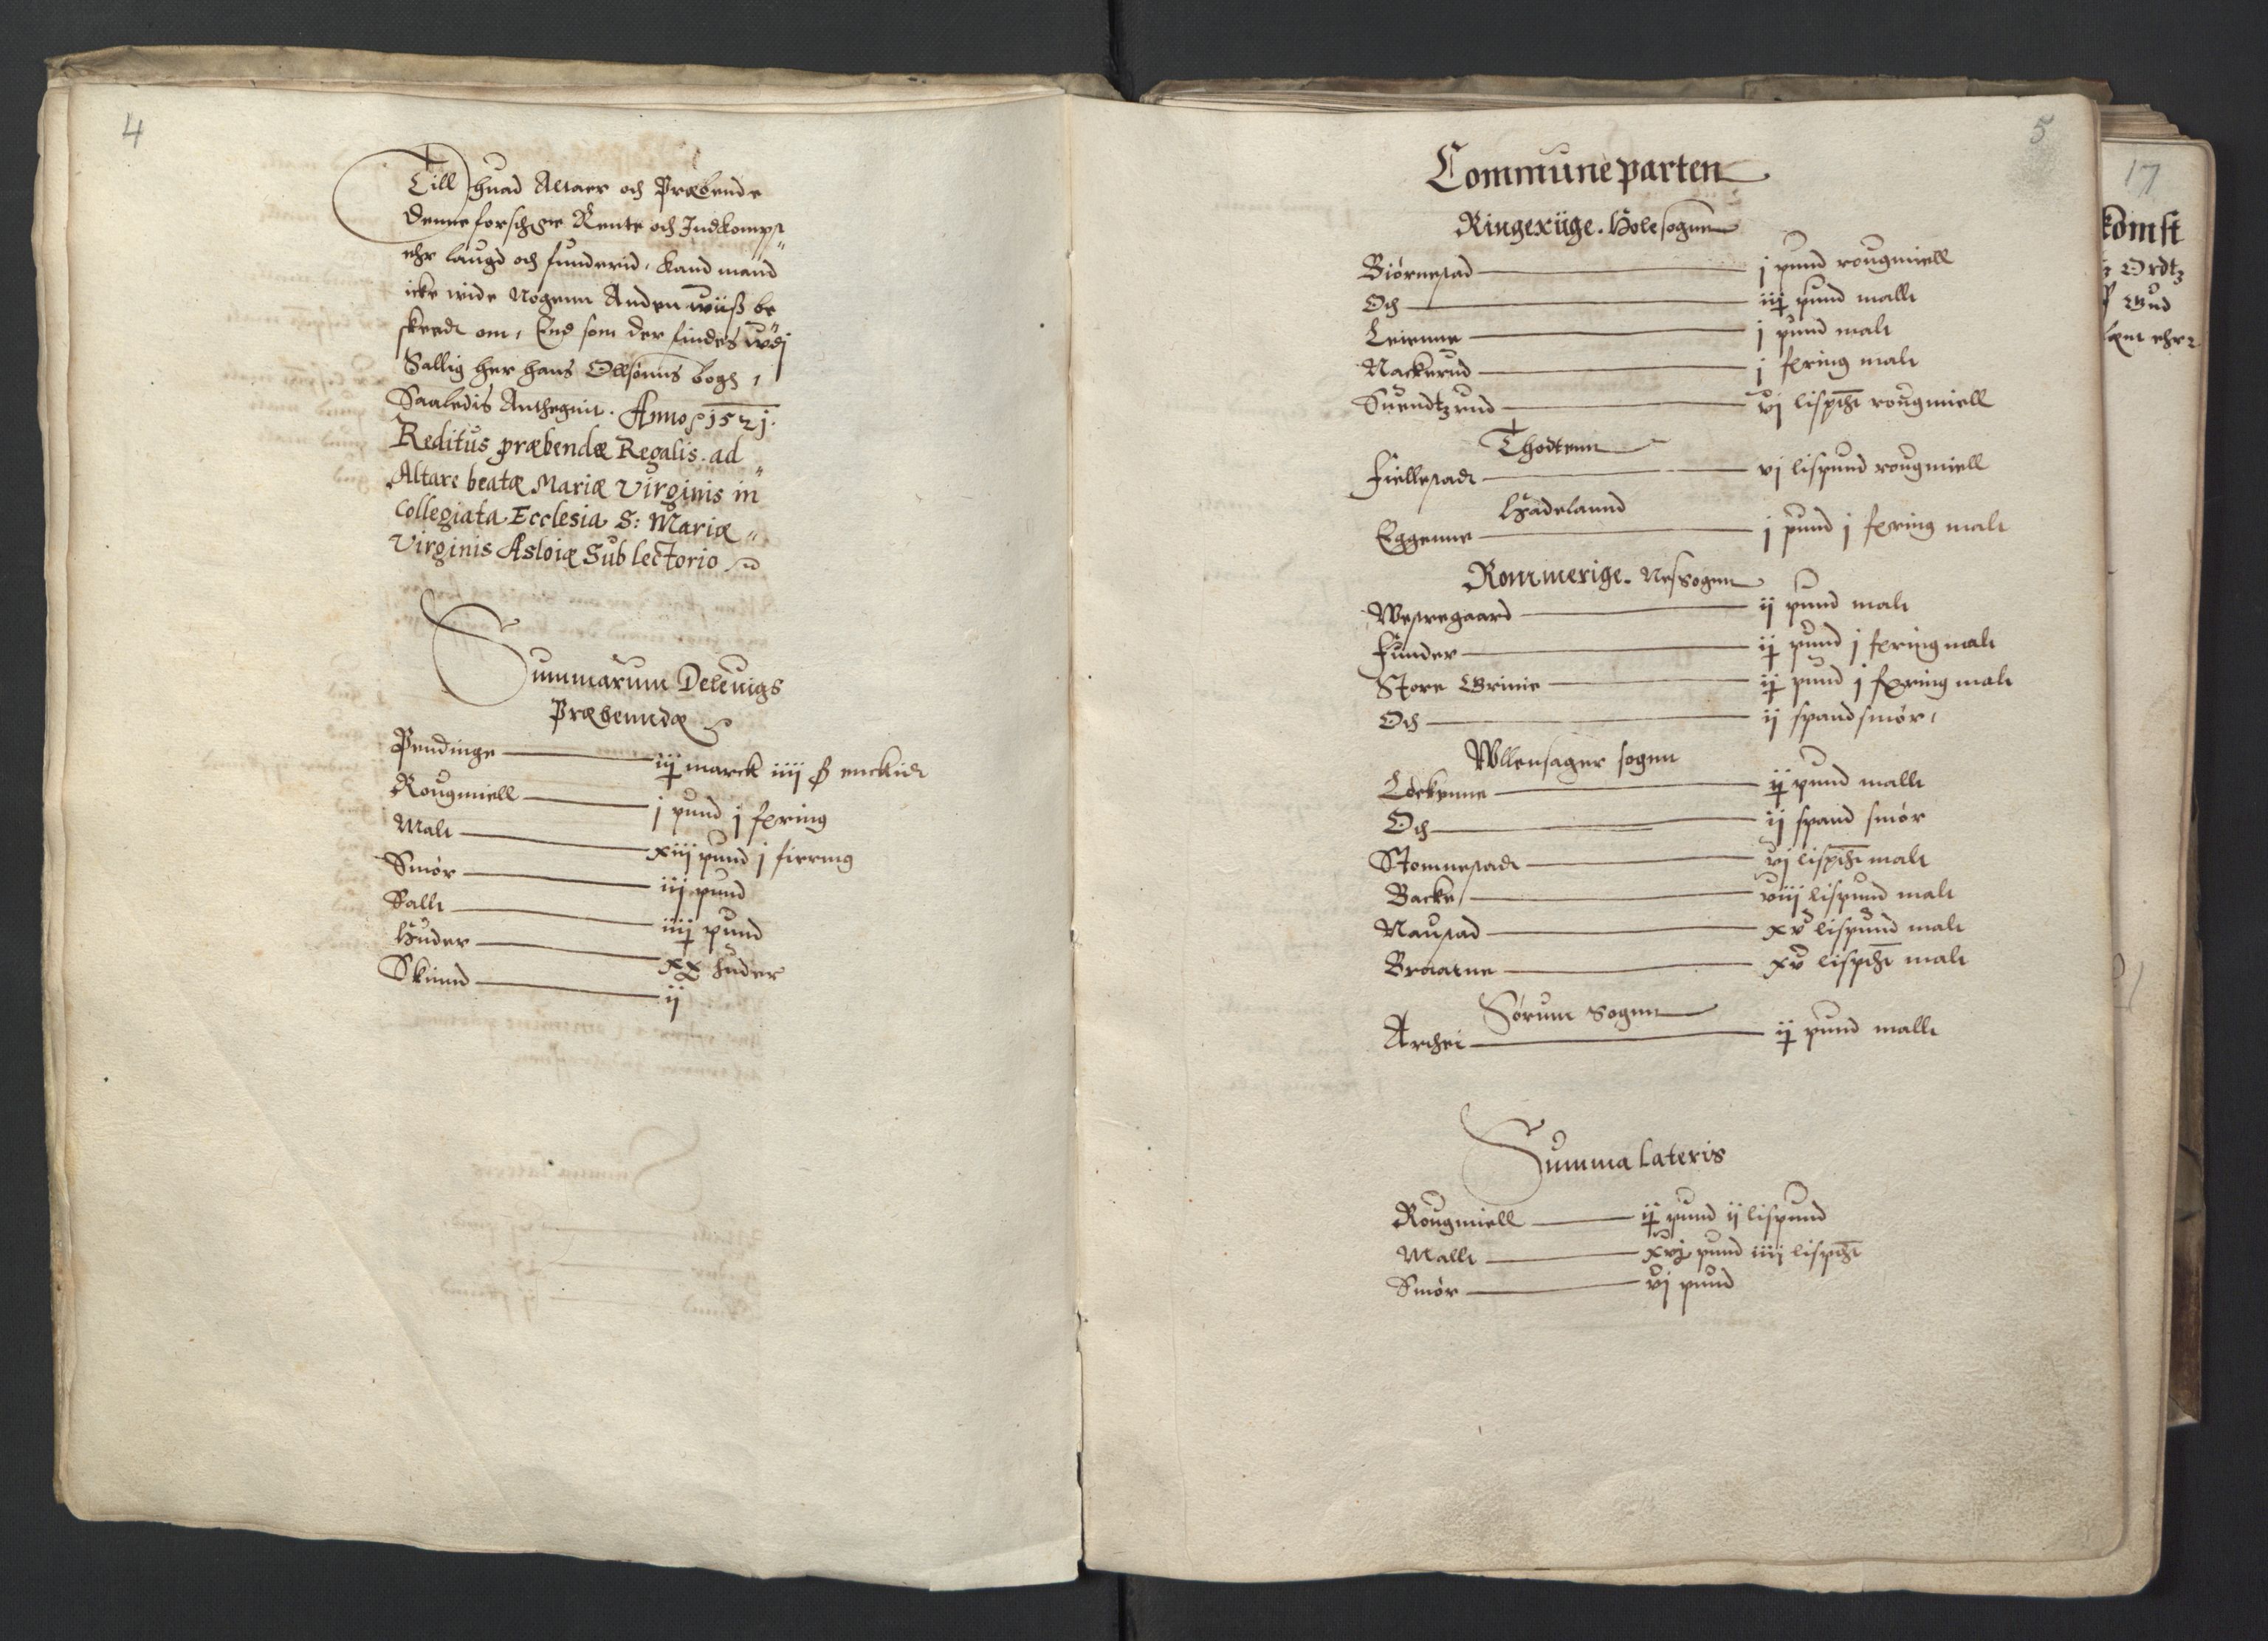 4
Till huad Altaer och Præbende
denne forschrne Rente och Indkompst
ehr laugd och funderid, kand mand
icke wide Nogenn Anden wiiß be
skeedt om, End som der findes wdj
Sallig her Hans Ollsønns bogh,
Saaledis Anthegnit. Anno 1521.
Reditus præbendæ Regalis. ad
Altare beatæ Mariæ Virginis in
Collegiata Ecclesia S: Mariæ
Virginis Asloiæ Sub lectorio
Summarum Delevigs
Præbenndæ
Pendinge — iij marck iiij ß enckidt
Rougmiell — j pund j fering
Malt — xiij pund j fierring
Smør — iij pund
Sallt — iiij pund
Huder — xx huder
Skinnd — ij
5
Commune parten
Ringeriige. Hole sognn
Biørnestad — j pund rougmiell
Och — iij pund malt
Leienne — j pund malt
Nackerud — j fering malt
Suendtzrud — vj lispdt rougmiell
Thodtenn
Fiellestadt — vj lispund rougmiell
Hadelannd
Eggenne — j pund j fering malt
Rommerige. Nes sogenn
Westregaard — ij pund malt
Funder — ij pund j fering malt
Store Grinie — ij pund j fering malt
Och — ij spand smør,
Wllensager sogen
Ldekenne — ij pund malt
Och — ij spand smør
Stomnestadt — vj lispdt malt
Backe — viij lispund malt
Naustad — xv lispund malt
Braatne — xv lispdt malt
Sørum Sogenn
Archei — ij pund malt
Summa Lateris
Rougmiell — ij pund ij lispund
Mallt — xvj pund iiij lispdt
Smør — vj pund
17
komst
Ordtz
Gud
ehr